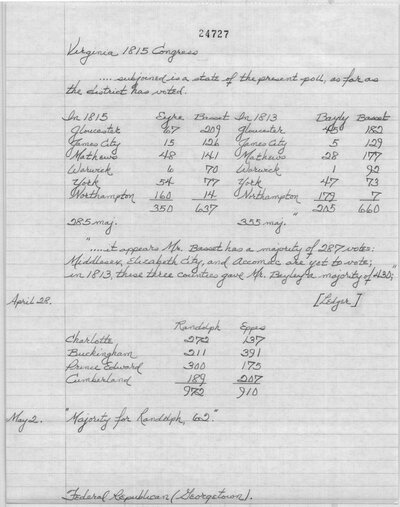 24727
Virginia 1815 Congress
....subjoined is a state of the present poll, as far as
the district has voted.
In 1815 Eyre Basset In 1813 Bayly Basset
Gloucester 67 209 Gloucester 45 182
James City 15 126 James City 5 129
Mathews 48 141 Mathews 28 177
Warwick 6 70 Warwick 1 92
York 54 77 York 47 73
Northampton 160 14 Northampton 179 7
350 637 205 660
285 maj. 355 maj."
"....it appears Mr. Basset has a majority of 287 votes:
Middlesex, Elizabeth City, and Accomac are yet to vote;
in 1813, these three counties gave Mr. Bayley a majority of 430;"
April 28. [Ledger]
Randolph Eppes
Charlotte 272 137
Buckingham 211 391
Prince Edward 300 175
Cumberland 189 207
972 910
May 2. "Majority for Randolph, 62."
Federal Republican (Georgetown).